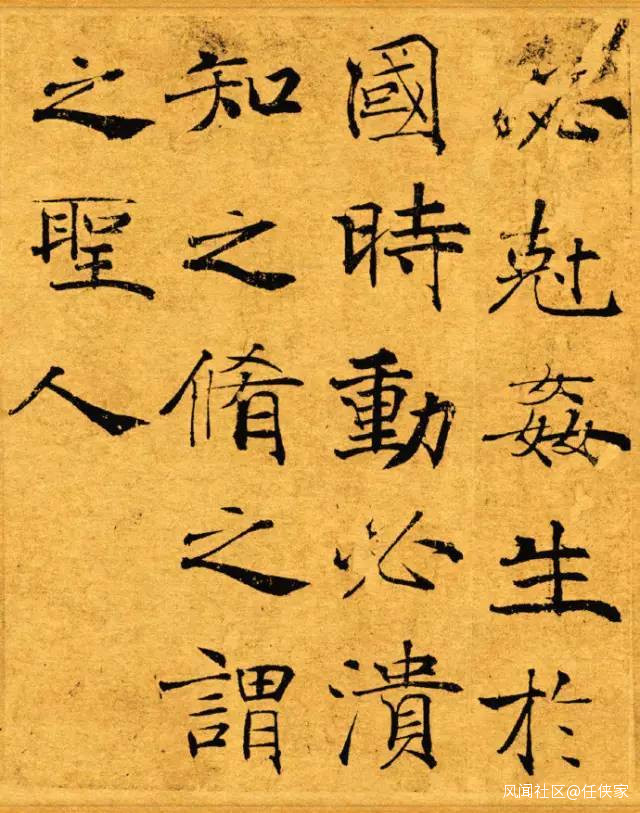 必尅姦生於
國時動必潰
知之脩之謂
之聖人
风闻社区@任侠家